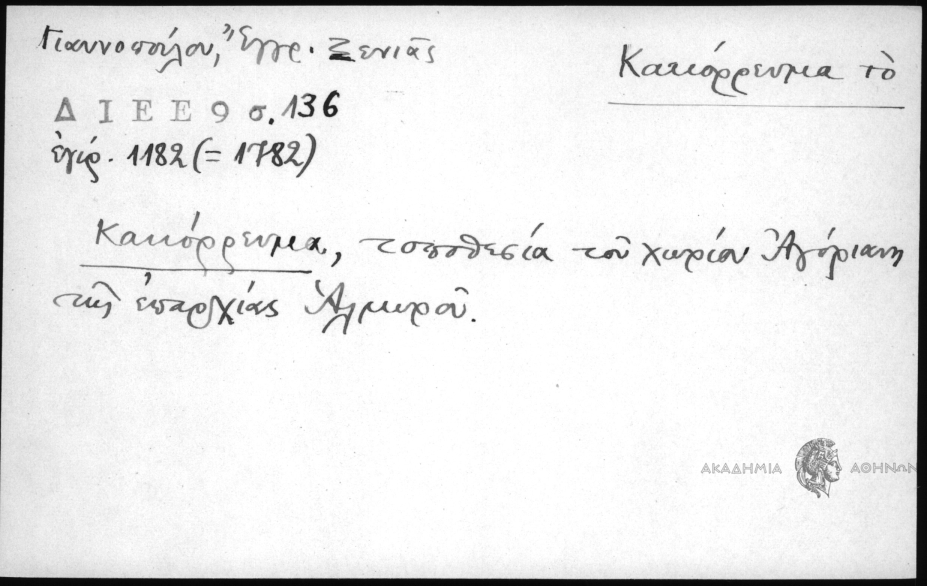 Γιαννοπούλου, Ἔγγρ. Ξενιᾶς
Κακόρρευμα τὸ
Δ Ι Ε Ε 9 σ. 136
ἐγίρ. 1182 (= 1782)
Κακόρρευμα, τοποθεσία τοῦ χωρίου Ἀγόριανη
τῆς ἐπαρχίας Ἁλμυροῦ.
ΑΚΑΔΗΜΙΑ ΑΘΗΝΩΝ